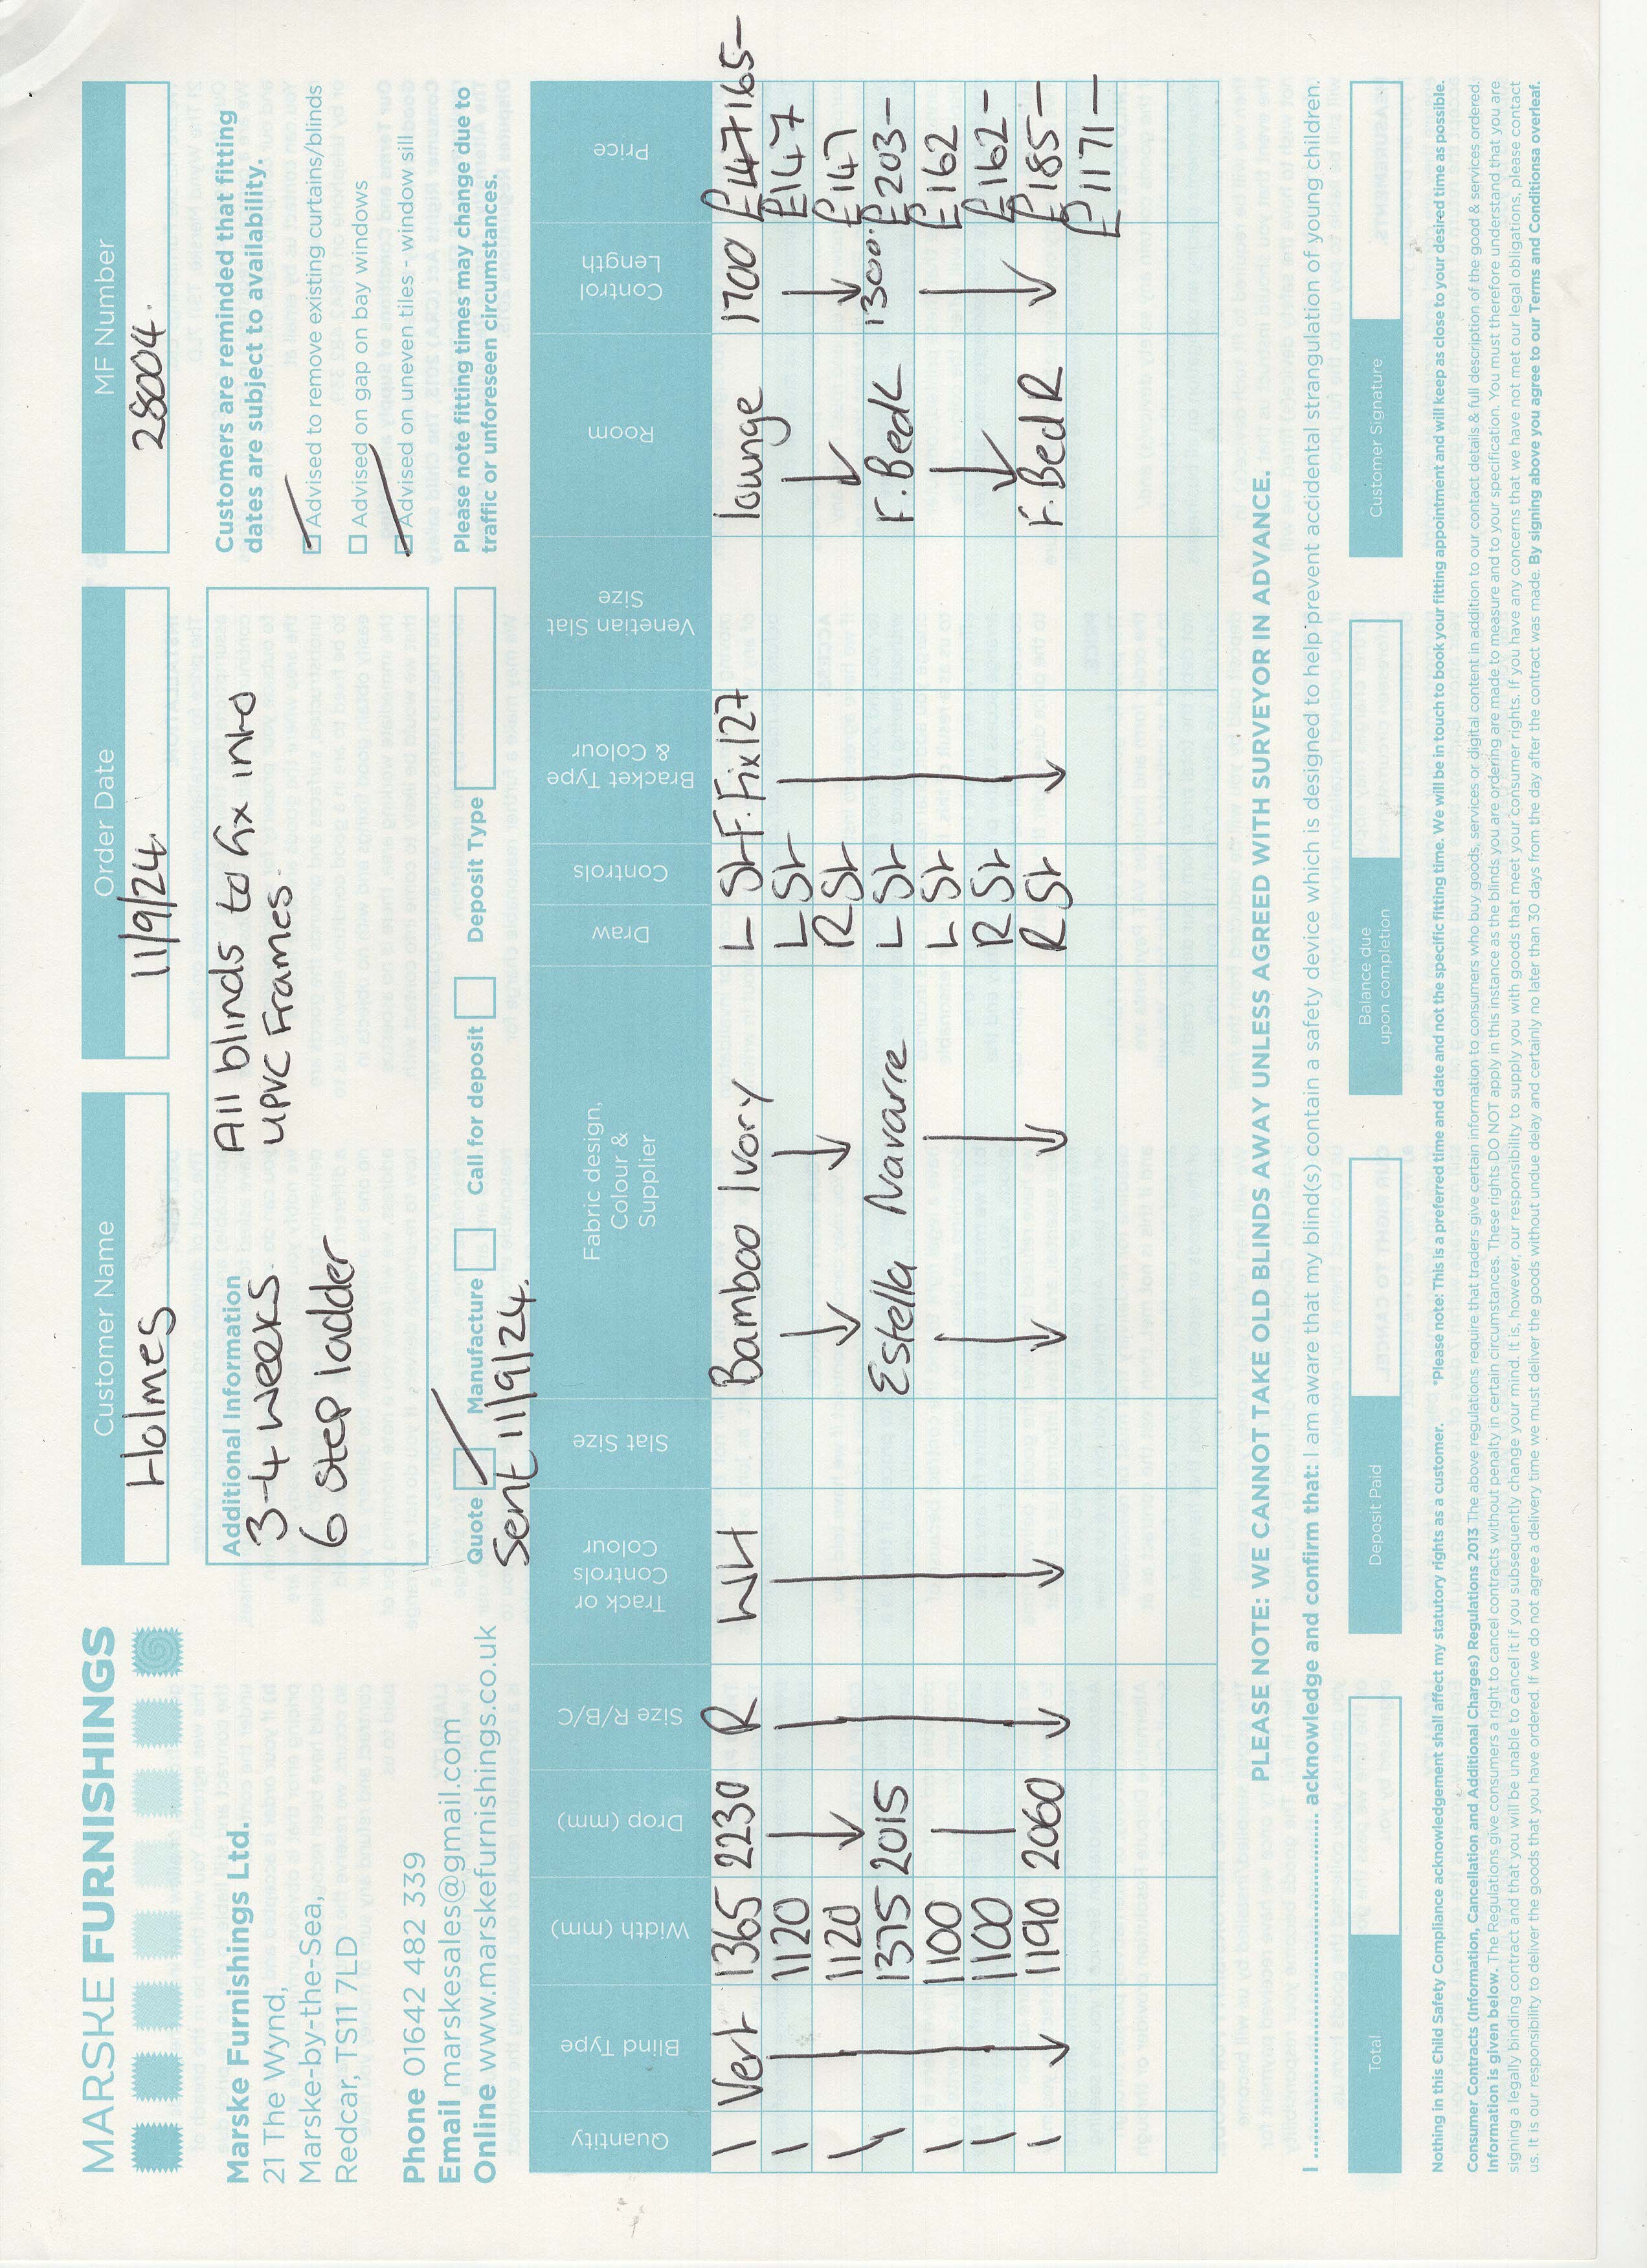 MARSKE FURNISHINGS
Marske Furnishings Ltd.
21 The Wynd,
Marske-by-the-Sea,
Redcar, TS11 7LD
Phone 01642 482 339
Email marskesales@gmail.com
Online www.marskefurnishings.co.uk
Customer Name
Holmes
Order Date
11/9/24.
MF Number
28004.
Additional Information
3-4 weeks.
6 Step ladder
All blinds to fix into
UPVC Frames.
Customers are reminded that fitting
dates are subject to availability.
Advised to remove existing curtains/blinds
Advised on gap on bay windows
Advised on uneven tiles - window sill
Please note fitting times may change due to
traffic or unforeseen circumstances.
Quote Manufacture Call for deposit Deposit Type
Sent 11/9/24.
Quantity Blind Type Width (mm) Drop (mm) Size R/B/C Track or Controls Colour Slat Size Fabric design, Colour & Supplier Draw Controls Bracket Type & Colour Venetian Slat Size Room Control Length Price
1 Vert 1365 2230 R WH Bamboo Ivory L St F.Fix 127 lounge 1700 £147 165-
1 1120 L St £147
1 1120 R St £147
1 1375 2015 Estella Navarre L St F.Bed L 1300. £203-
1 1100 L St £162
1 1100 R St £162-
1 1190 2060 R St F.Bed R £185-
£1171-
PLEASE NOTE: WE CANNOT TAKE OLD BLINDS AWAY UNLESS AGREED WITH SURVEYOR IN ADVANCE.
I .................... acknowledge and confirm that: I am aware that my blind(s) contain a safety device which is designed to help prevent accidental strangulation of young children.
Total
Deposit Paid
Balance due
upon completion
Customer Signature
Nothing in this Child Safety Compliance acknowledgement shall affect my statutory rights as a customer. *Please note: This is a preferred time and date and not the specific fitting time. We will be in touch to book your fitting appointment and will keep as close to your desired time as possible.
Consumer Contracts (Information, Cancellation and Additional Charges) Regulations 2013 The above regulations require that traders give certain information to consumers who buy goods, services or digital content in addition to our contact details & full description of the good & services ordered.
Information is given below. The Regulations give consumers a right to cancel contracts without penalty in certain circumstances. These rights DO NOT apply in this instance as the blinds you are ordering are made to measure and to your specification. You must therefore understand that you are
signing a legally binding contract and that you will be unable to cancel it if you subsequently change your mind. It is, however, our responsibility to supply you with goods that meet your consumer rights. If you have any concerns that we have not met our legal obligations, please contact
us. It is our responsibility to deliver the goods that you have ordered. If we do not agree a delivery time we must deliver the goods without undue delay and certainly no later than 30 days from the day after the contract was made. By signing above you agree to our Terms and Conditionsa overleaf.